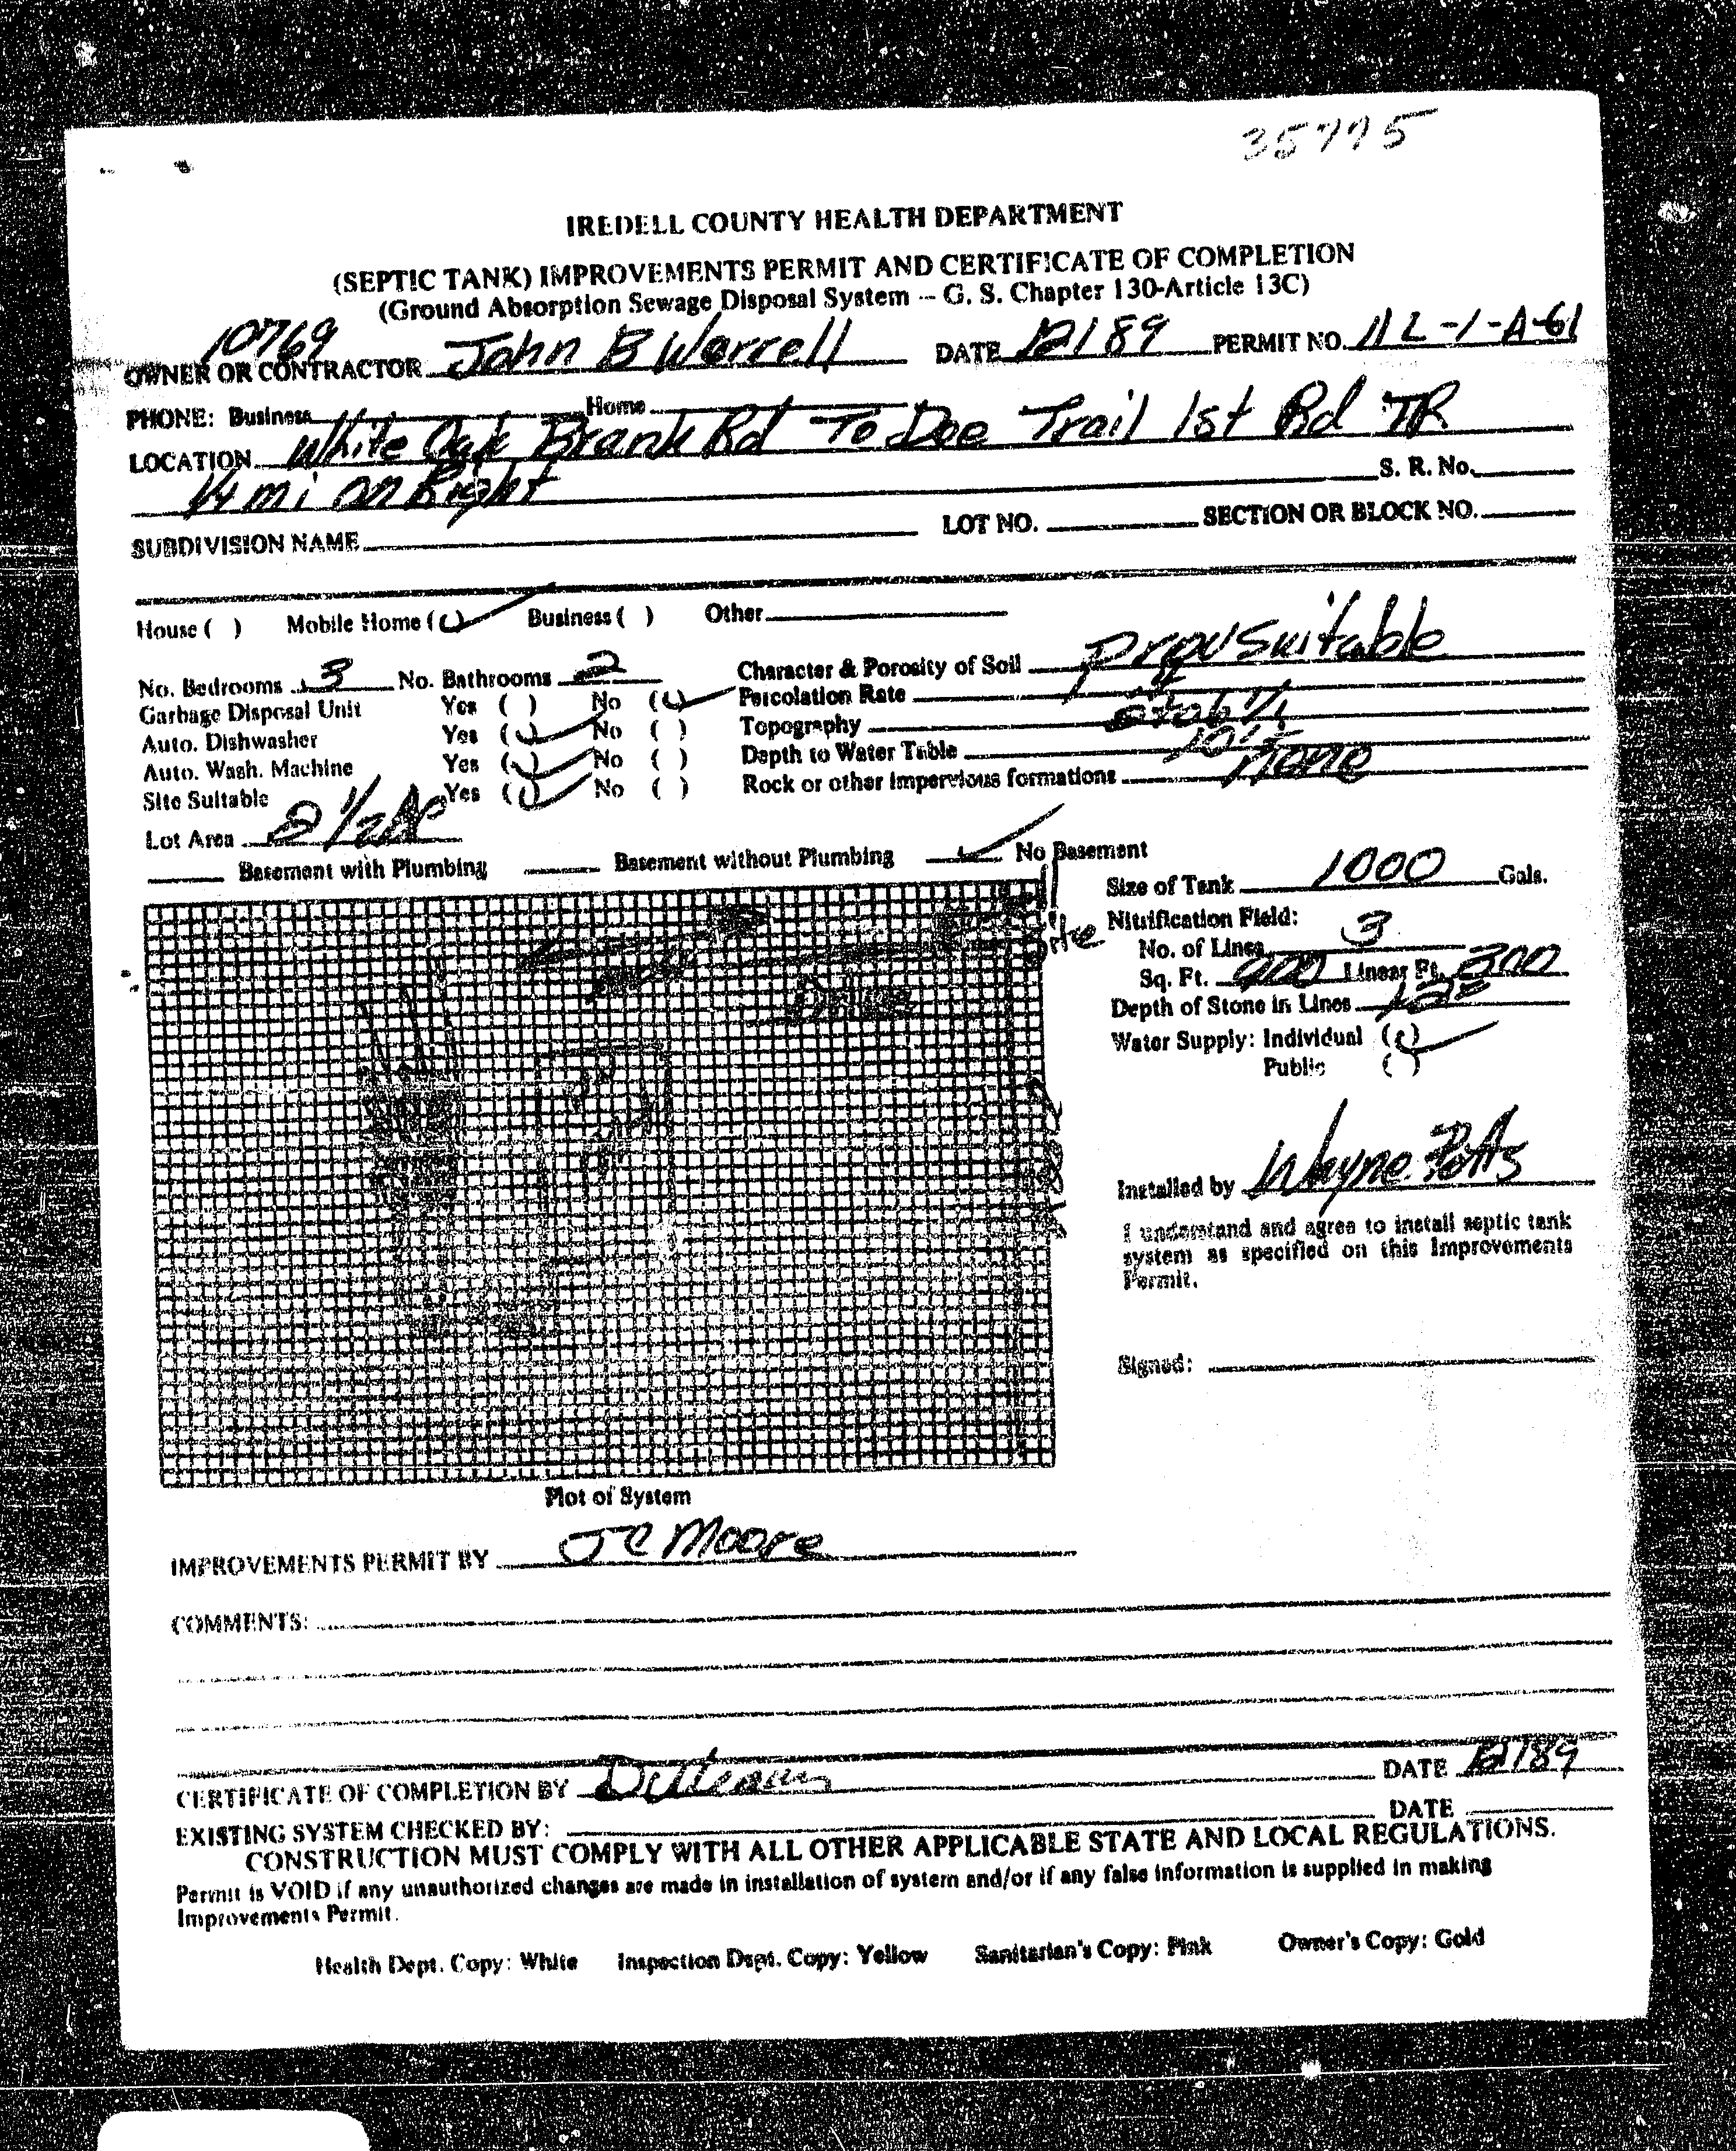 35775
IREDELL COUNTY HEALTH DEPARTMENT
(SEPTIC TANK) IMPROVEMENTS PERMIT AND CERTIFICATE OF COMPLETION
(Ground Absorption Sewage Disposal System -- G. S. Chapter 130-Article 13C)
10769
OWNER OR CONTRACTOR John B Worrell DATE 12189 PERMIT NO. 11L-1-A-61
PHONE: Business Home
LOCATION White Oak Brank Rd To Doe Trail 1st Rd TR
1/4 mi on Right S. R. No.
SUBDIVISION NAME LOT NO. SECTION OR BLOCK NO.
House ( ) Mobile Home (✓) Business ( ) Other
No. Bedrooms 3 No. Bathrooms 2 Character & Porosity of Soil prov suitable
Garbage Disposal Unit Yes ( ) No (✓) Percolation Rate
Auto. Dishwasher Yes (✓) No ( ) Topography
Auto. Wash. Machine Yes (✓) No ( ) Depth to Water Table
Site Suitable Yes (✓) No ( ) Rock or other impervious formations None
Lot Area 2 1/2 Ac
Basement with Plumbing Basement without Plumbing ✓ No Basement
Size of Tank 1000 Gals.
Nitrification Field:
No. of Lines 3
Sq. Ft. 900 Linear Ft. 300
Depth of Stone in Lines 12"
Water Supply: Individual (✓)
Public ( )
Installed by Wayne Potts
I understand and agree to install septic tank
system as specified on this Improvements
Permit.
Signed:
Plot of System
IMPROVEMENTS PERMIT BY JC Moore
COMMENTS:
CERTIFICATE OF COMPLETION BY DATE 12189
EXISTING SYSTEM CHECKED BY: DATE
CONSTRUCTION MUST COMPLY WITH ALL OTHER APPLICABLE STATE AND LOCAL REGULATIONS.
Permit is VOID if any unauthorized changes are made in installation of system and/or if any false information is supplied in making
Improvements Permit.
Health Dept. Copy: White Inspection Dept. Copy: Yellow Sanitarian's Copy: Pink Owner's Copy: Gold